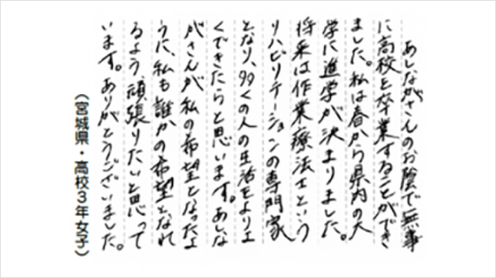 あしながさんのお陰で無事
に高校を卒業することができ
ました。私は春から県内の大
学に進学が決まりました。
将来は作業療法士という
リハビリテーションの専門家
となり、多くの人の生活をより上
くできたらと思います。あしな
がさんが私の希望となったよ
うに、私も誰かの希望となれ
るよう頑張りたいと思って
います。ありがとうございました。
(宮城県・高校3年女子)